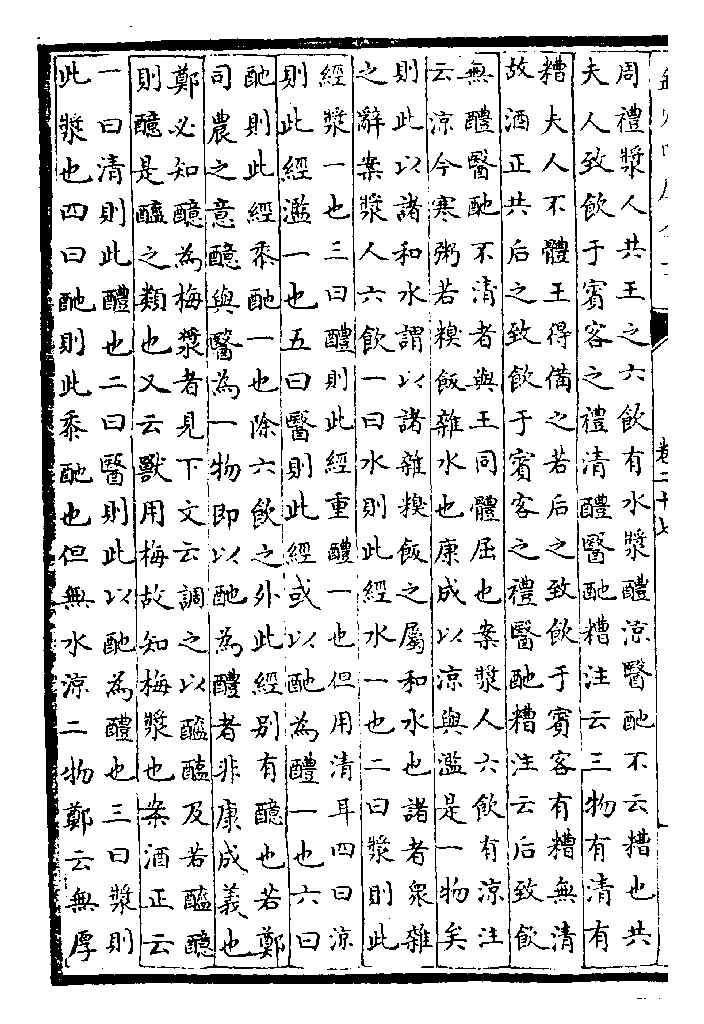 周禮漿人共王之六飲有水漿醴涼醫酏不云糟也共
夫人致飲于賓客之禮清醴醫酏糟注云三物有清有
糟夫人不體王得備之若后之致飲于賓客有糟無清
故酒正共后之致飲于賓客之禮醫酏糟注云后致飲
無醴醫酏不清者與王同體屈也案漿人六飲有涼注
云涼今寒粥若糗飯雜水也康成以涼與濫是一物矣
則此以諸和水謂以諸雜糗飯之屬和水也諸者衆雜
之辭案漿人六飲一曰水則此經水一也二曰漿則此
經漿一也三曰醴則此經重醴一也但用清耳四曰涼
則此經濫一也五曰醫則此經或以酏為醴一也六曰
酏則此經黍酏一也除六飲之外此經别有醷也若鄭
司農之意醷與醫為一物即以酏為醴者非康成義也
鄭必知醷為梅漿者見下文云調之以醯醢及若醯醷
則醷是醯之類也又云獸用梅故知梅漿也案酒正云
一曰清則此醴也二曰醫則此以酏為醴也三曰漿則
此漿也四曰酏則此黍酏也但無水涼二物鄭云無厚